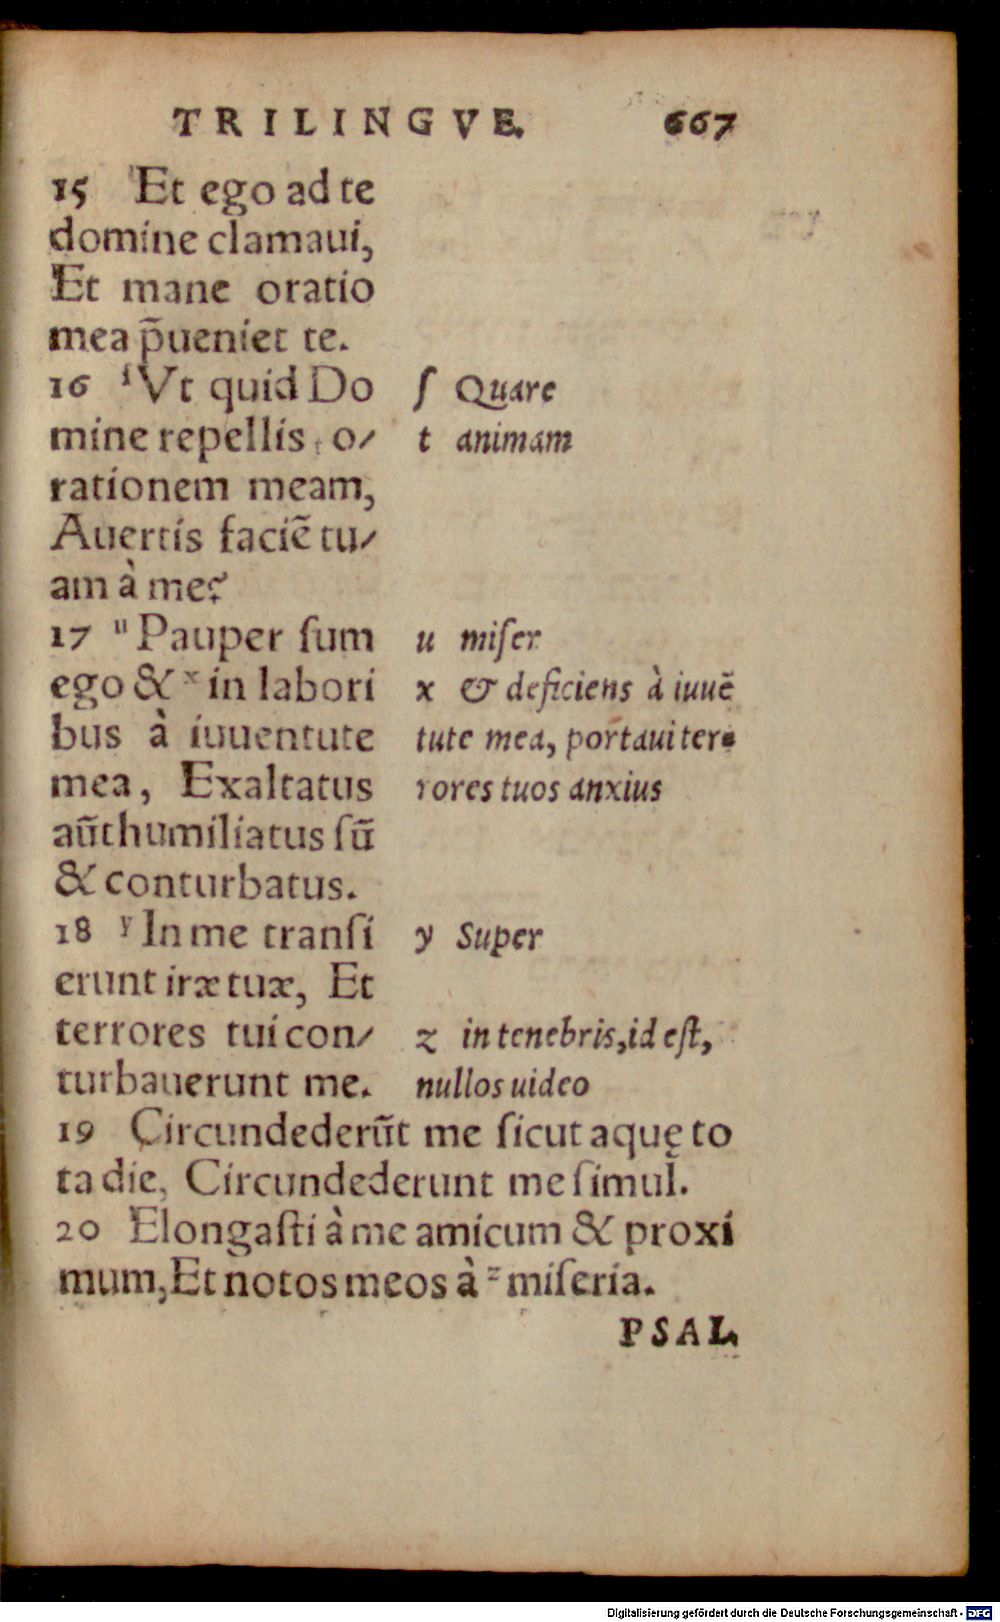 TRILINGVE. 667
15 Et ego ad te
domine clamaui,
Et mane oratio
mea p̃ueniet te.
16 ſVt quid Do
mine repellis o/
rationem meam,
Auertis faciẽ tu/
am à me?
17 uPauper ſum
ego & xin labori
bus à iuuentute
mea, Exaltatus
aũt humiliatus ſũ
& conturbatus.
18 yIn me tranſi
erunt iræ tuæ, Et
terrores tui con/
turbauerunt me.
ſ Quare
t animam
u miſer
x & deficiens à iuuẽ
tute mea, portaui ter-
rores tuos anxius
y Super
z in tenebris, id eſt,
nullos uideo
19 Circundederũt me ſicut aquę to
ta die, Circundederunt me ſimul.
20 Elongaſti à me amicum & proxi
mum, Et notos meos à zmiſeria.
PSAL.
Digitalisierung gefördert durch die Deutsche Forschungsgemeinschaft - DFG